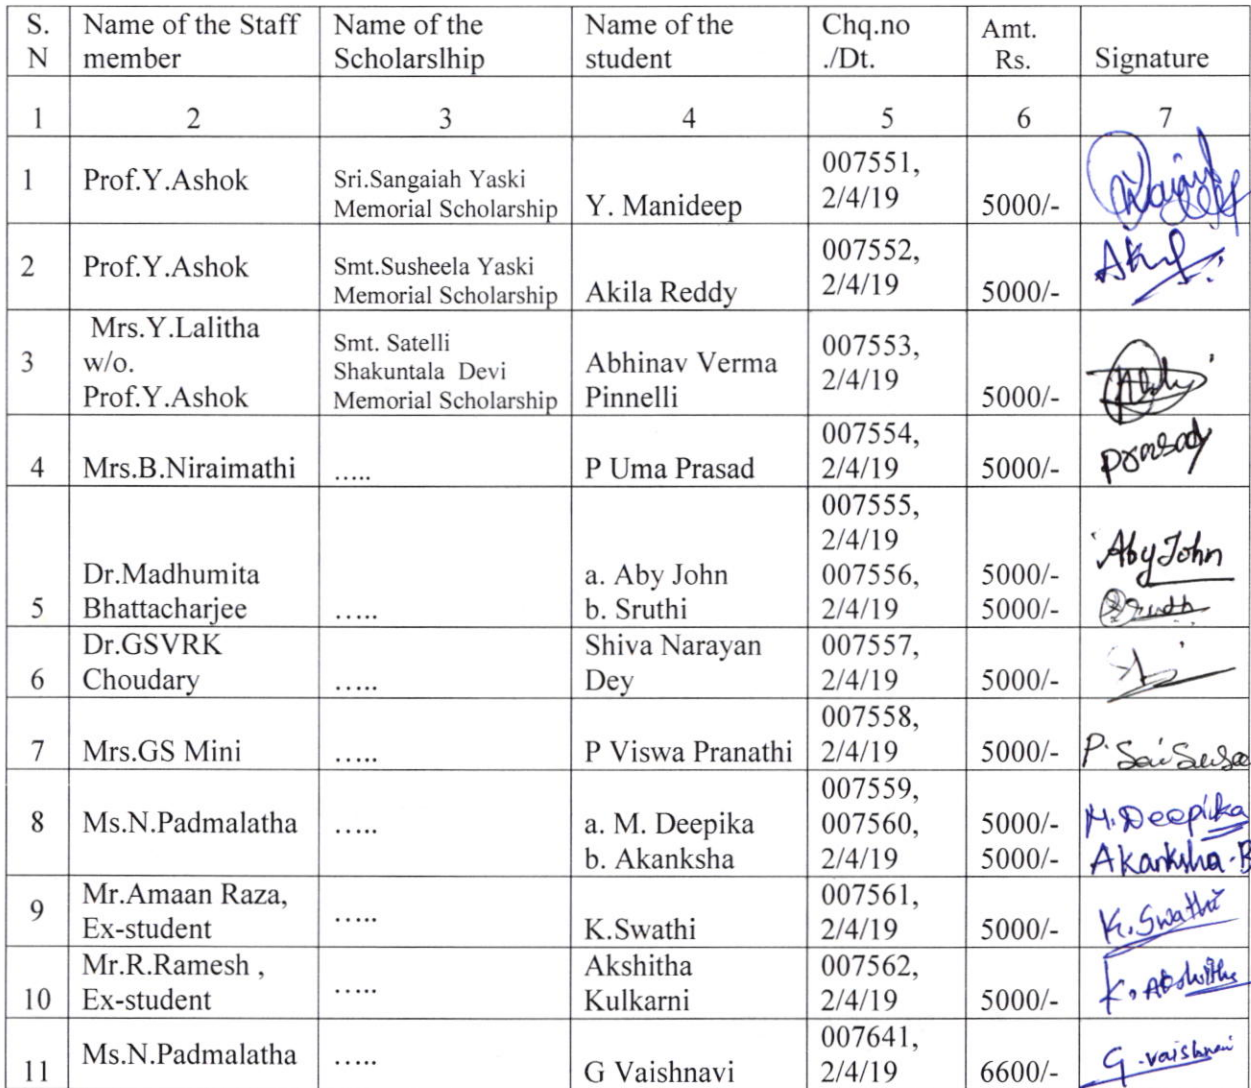 S. N Name of the Staff member Name of the Scholarslhip Name of the student Chq.no ./Dt. Amt. Rs. Signature
1 2 3 4 5 6 7
1 Prof.Y.Ashok Sri.Sangaiah Yaski Memorial Scholarship Y. Manideep 007551, 2/4/19 5000/-
2 Prof.Y.Ashok Smt.Susheela Yaski Memorial Scholarship Akila Reddy 007552, 2/4/19 5000/-
3 Mrs.Y.Lalitha w/o. Prof.Y.Ashok Smt. Satelli Shakuntala Devi Memorial Scholarship Abhinav Verma Pinnelli 007553, 2/4/19 5000/-
4 Mrs.B.Niraimathi ..... P Uma Prasad 007554, 2/4/19 5000/- Prasad
5 Dr.Madhumita Bhattacharjee ..... a. Aby John b. Sruthi 007555, 2/4/19 007556, 2/4/19 5000/- 5000/- Aby John
6 Dr.GSVRK Choudary ..... Shiva Narayan Dey 007557, 2/4/19 5000/-
7 Mrs.GS Mini ..... P Viswa Pranathi 007558, 2/4/19 5000/- P. Sai
8 Ms.N.Padmalatha ..... a. M. Deepika b. Akanksha 007559, 007560, 2/4/19 5000/- 5000/- M. Deepika Akanksha. B
9 Mr.Amaan Raza, Ex-student ..... K.Swathi 007561, 2/4/19 5000/- K. Swathi
10 Mr.R.Ramesh , Ex-student ..... Akshitha Kulkarni 007562, 2/4/19 5000/-
11 Ms.N.Padmalatha ..... G Vaishnavi 007641, 2/4/19 6600/- G. vaishnavi